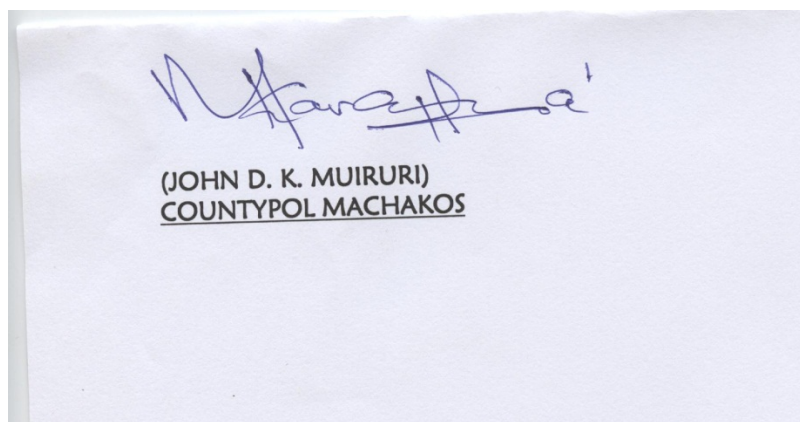 (JOHN D. K. MUIRURI)
COUNTYPOL MACHAKOS